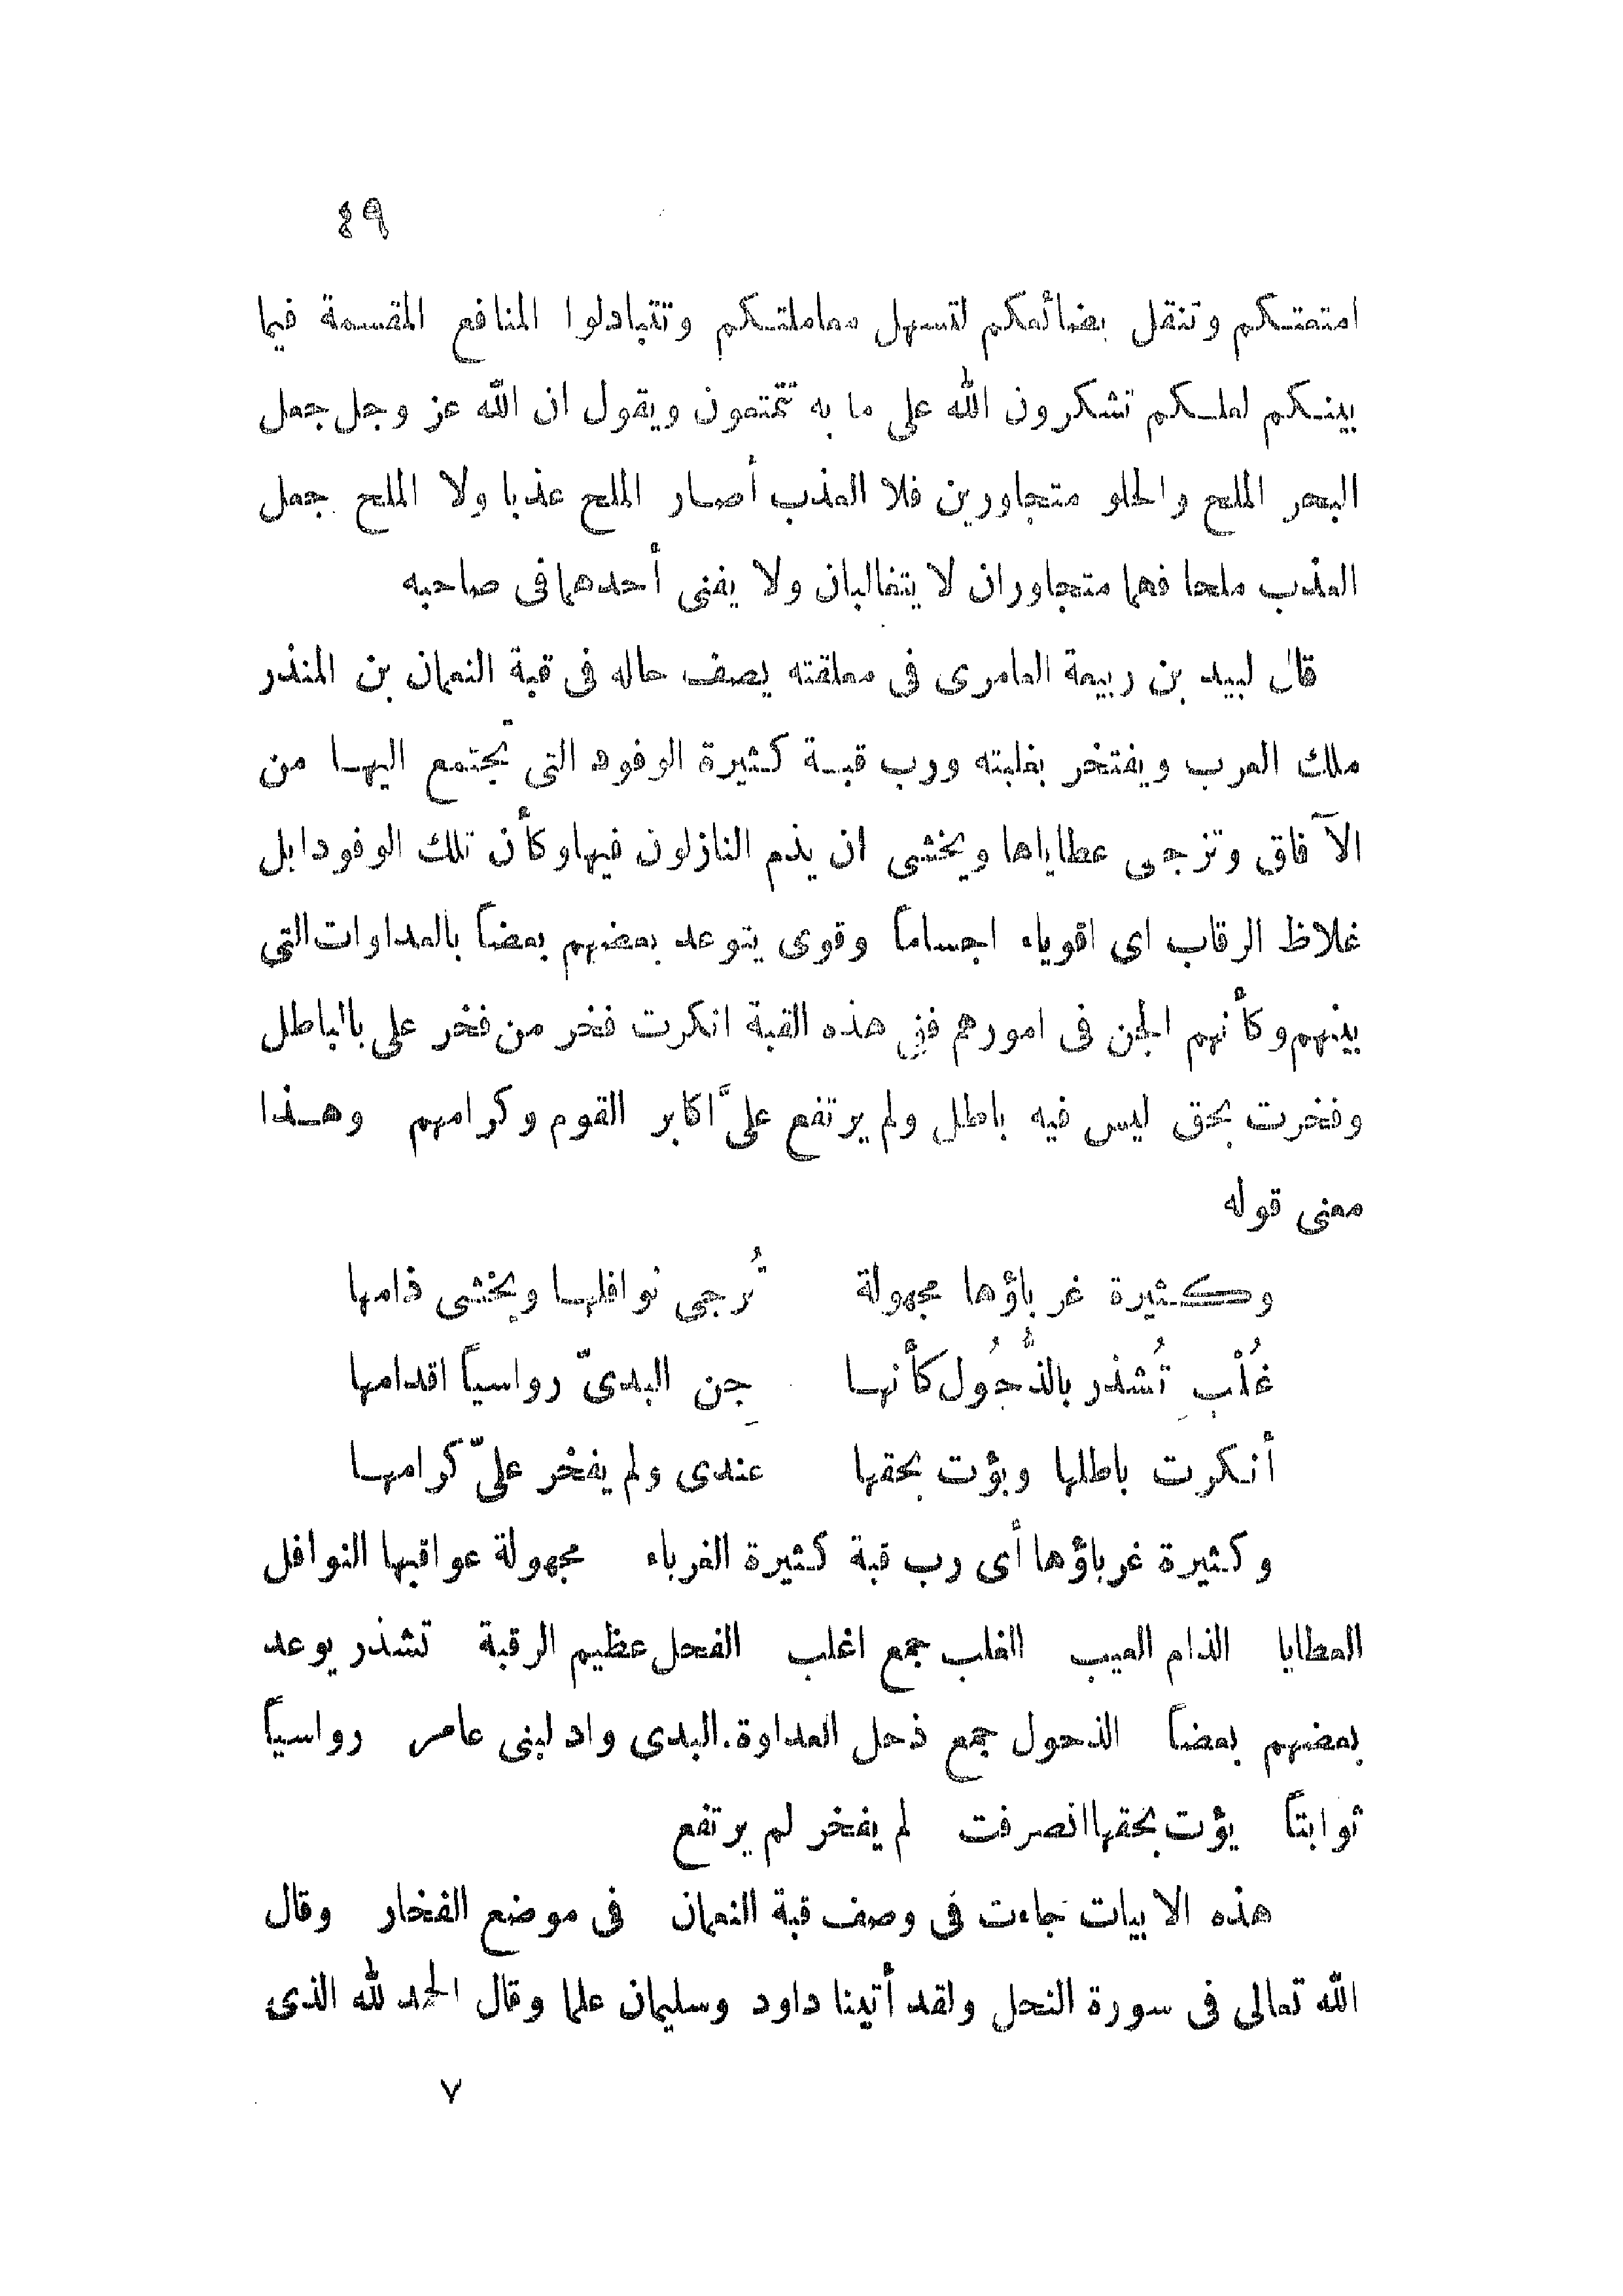 ٤٩
امتعتكم وتنقل بضائعكم لتسهل معاملتكم وتتبادلوا المنافع المقسمة فيما
بينكم لعلكم تشكرون الله على ما به تتمتعون ويقول ان الله عز وجل جعل
البحر الملح والحلو متجاورين فلا العذب أصار الملح عذبا ولا الملح جعل
العذب ملحا فهما متجاوران لا يتغالبان ولا يفنى أحدهما فى صاحبه
قال لبيد بن ربيعة العامرى فى معلقته يصف حاله فى قبة النعمان بن المنذر
ملك العرب ويفتخر بغلبته ورب قبة كثيرة الوفود التى تجتمع اليها من
الآفاق وترجى عطاياها ويخشى ان يذم النازلون فيها وكأن تلك الوفود ابل
غلاظ الرقاب اى اقوياء اجساماً وقوى يتوعد بعضهم بعضاً بالعداوات التى
بينهم وكأنهم الجن فى امورهم ففى هذه القبة انكرت فخر من فخر على بالباطل
وفخرت بحق ليس فيه باطل ولم يرتفع علىَّ اكابر القوم وكرامهم وهذا
معنى قوله
وكثيرة غرباؤها مجهولة تُرجى نوافلها ويخشى ذامها
غُلْبٍ تُشذر بالذُّحُول كأنها جِن البدىّ رواسياً اقدامها
أنكرت باطلها وبؤت بحقها عندى ولم يفخر علىّ كرامها
وكثيرة غرباؤها أى رب قبة كثيرة الغرباء مجهولة عواقبها النوافل
العطايا الذام العيب الغلب جمع اغلب الفحل عظيم الرقبة تشذر يوعد
بعضهم بعضاً الذحول جمع ذحل العداوة. البدى واد لبنى عامر رواسياً
ثوابتاً بؤت بحقها انصرفت لم يفخر لم يرتفع
هذه الابيات جاءت فى وصف قبة النعمان فى موضع الفخار وقال
الله تعالى فى سورة النحل ولقد أتينا داود وسليمان علما وقال الحمد لله الذى
٧